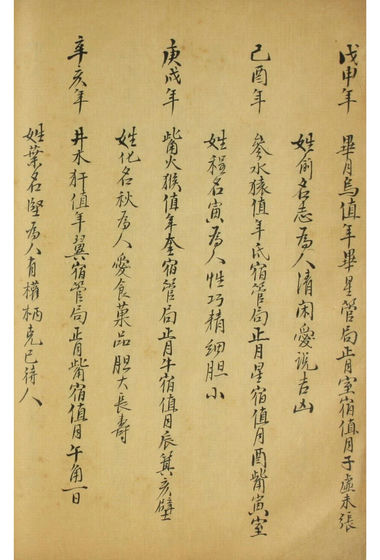 戊申年 畢月烏值年畢星管局正月室宿值月子虛未張
姓俞名志為人清闲愛説吉凶
己酉年 參水猿值年氐宿管局正月星宿值月酉觜寅室
姓程名寅為人性巧精細胆小
庚戌年 觜火猴值年奎宿管局正月牛宿值月辰箕亥壁
姓化名秋為人愛食菓品胆大長壽
辛亥年 井木犴值年翼宿管局正月觜宿值月午角一日
姓葉名堅為人有權柄克己待人